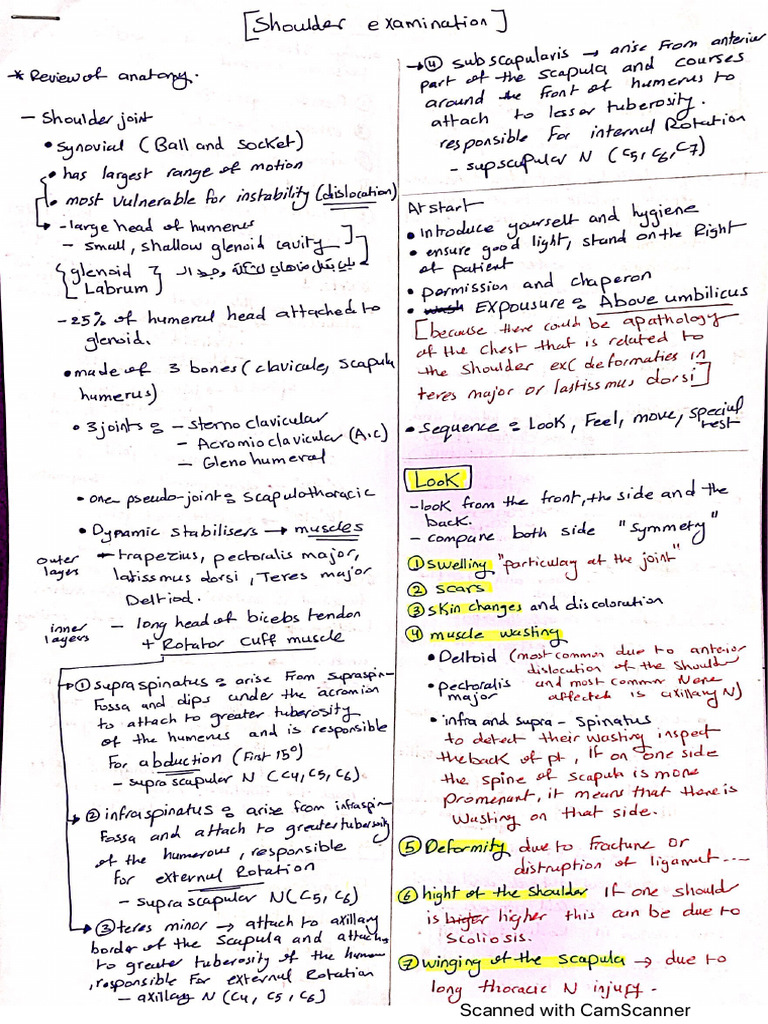 [Shoulder examination]
* Review of anatomy.
- Shoulder joint
• synovial (Ball and socket)
• has largest range of motion
• most vulnerable for instability (dislocation)
- large head of humerus
- small, shallow glenoid cavity
{glenoid Labrum}
- 25% of humeral head attached to
glenoid.
• made of 3 bones (clavicule, scapula
humerus)
• 3 joints : - Sterno clavicular
- Acromio clavicular (A.C)
- Gleno humeral
• one pseudo-joint : scapulothoracic
• Dynamic stabilisers → muscles
outer layers - trapezius, pectoralis major,
latissmus dorsi, Teres major
Deltiod.
inner layers - long head of bicebs tendon
+ Rotator cuff muscle
① supraspinatus : arise from supraspin-
Fossa and dips under the acromion
to attach to greater tuberosity
of the humerus and is responsible
For abduction (First 15°)
- supra scapular N (C4, C5, C6)
② infraspinatus : arise from infraspin-
Fossa and attach to greater tuberosity
of the humerous, responsible
for external Rotation
- supra scapular N (C5, C6)
③ teres minor → attach to axillary
border of the scapula and attach
to greater tuberosity of the human
, responsible For external Rotation
- axillay N (C4, C5, C6)
→ ④ subscapularis → arise From anterior
part of the scapula and courses
around the front of humerus to
attach to lesser tuberosity.
responsible For internal Rotation
- supscapular N (C5, C6, C7)
At start
• introduce yourself and hygiene
• ensure good light, stand on the Right
of patient
• permission and chaperon
• wash EXPOUSURE : Above umbilicus
[because there could be apathology
of the chest that is related to
the shoulder exc deformaties in
teres major or lastissmus dorsi]
• Sequence : Look, Feel, move, special
test
Look
- look from the front, the side and the
back.
- compare both side "symmetry"
① swelling "particulay at the joint"
② scars
③ skin changes and discoloration
④ muscle wasting
• Deltoid (most common due to anterior
dislocation of the shoulder
• pectoralis major and most common Nerve
affected is axillary N)
• infra and supra - spinatus
to detect their wasting inspect
the back of pt, If on one side
the spine of scapula is more
promenant, it means that there is
wasting on that side.
⑤ Deformity due to fracture or
distruption of ligament ---
⑥ hight of the shoulder If one should
is higher higher this can be due to
Scoliosis.
⑦ winging of the scapula → due to
long thoracic N injury.
Scanned with CamScanner